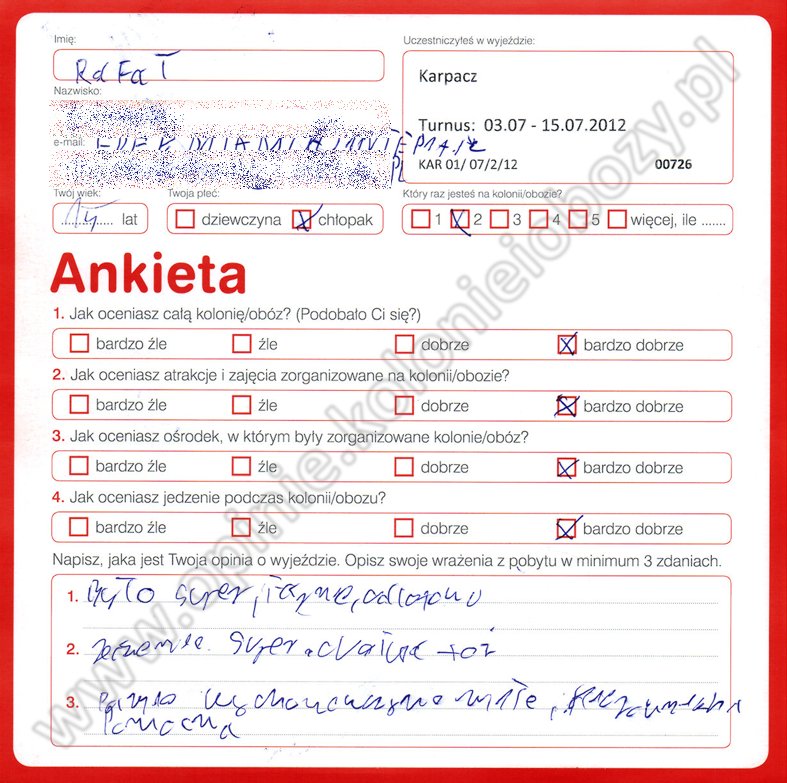 Imię:
Uczestniczyłeś w wyjeździe:
RaFaŁ
Karpacz
Nazwisko:
Turnus: 03.07 - 15.07.2012
e-mail:
KAR 01/ 07/2/12 00726
Twój wiek:
Twoja płeć:
Który raz jesteś na kolonii/obozie?
15 lat
dziewczyna chłopak
1 2 3 4 5 więcej, ile .......
Ankieta
1. Jak oceniasz całą kolonię/obóz? (Podobało Ci się?)
bardzo źle źle dobrze bardzo dobrze
2. Jak oceniasz atrakcje i zajęcia zorganizowane na kolonii/obozie?
bardzo źle źle dobrze bardzo dobrze
3. Jak oceniasz ośrodek, w którym były zorganizowane kolonie/obóz?
bardzo źle źle dobrze bardzo dobrze
4. Jak oceniasz jedzenie podczas kolonii/obozu?
bardzo źle źle dobrze bardzo dobrze
Napisz, jaka jest Twoja opinia o wyjeździe. Opisz swoje wrażenia z pobytu w minimum 3 zdaniach.
1. Było super, fajnie,
2. Jedzenie super
3. miłe,
Pomocna
www.opinie.kolonieiobozy.pl